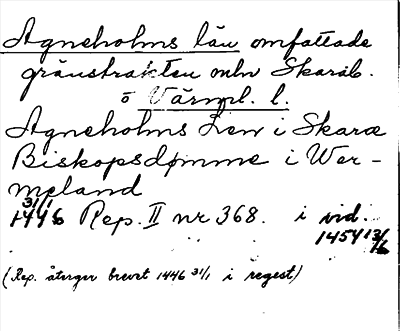 Agneholms län omfattade
gränstrakten mln Skarab.
o Värml. l.
Agneholms Len i Skaræ
Biskopsdømme i Wer-
meland
31/1
1446 Rep. II nr 368. i vid.
1454 13/16
(Rep. återger brevet 1446 31/1 i regest.)